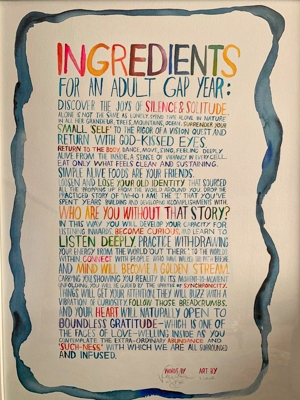 INGREDIENTS
FOR AN ADULT GAP YEAR:
DISCOVER THE JOYS OF SILENCE & SOLITUDE
ALONE IS NOT THE SAME AS LONELY. SPEND TIME ALONE IN NATURE
IN ALL HER GRANDEUR, TREES, MOUNTAINS, OCEAN. SURRENDER YOUR
SMALL SELF TO THE RIGOR OF A VISION QUEST AND
RETURN WITH GOD-KISSED EYES.
RETURN TO THE BODY. DANCE, MOVE, SING, FEELING DEEPLY
ALIVE FROM THE INSIDE, A SENSE OF VIBRANCY IN EVERY CELL.
EAT ONLY WHAT FEELS CLEAN AND SUSTAINING.
SIMPLE ALIVE FOODS ARE YOUR FRIENDS.
LOOSEN AND LOSE YOUR OLD IDENTITY THAT SOURCED
ALL THE PROPPING UP FROM THE WORLD AROUND YOU. DROP THE
PRACTICED STORY OF "YOU" AND THE "I" THAT YOU'VE
SPENT YEARS BUILDING AND DEVELOPING ACCOMPLISHMENTS WITH.
WHO ARE YOU WITHOUT THAT STORY?
IN THIS WAY YOU WILL DEVELOP YOUR CAPACITY FOR
LISTENING INWARDS. BECOME CURIOUS, AND LEARN TO
LISTEN DEEPLY. PRACTICE WITHDRAWING
YOUR ENERGY FROM THE WORLD "OUT THERE" TO THE WORLD
WITHIN. CONNECT WITH PEOPLE WHO HAVE WALKED THIS PATH BEFORE
AND MIND WILL BECOME A GOLDEN STREAM
CARRYING YOU, SHOWING YOU REALITY IN ITS MOMENT-TO-MOMENT
UNFOLDING. YOU WILL BE GUIDED BY THE SPIRIT OF SYNCHRONICITY.
THINGS WILL GET YOUR ATTENTION, THEY WILL BUZZ WITH A
VIBRATION OF CURIOSITY. FOLLOW THOSE BREADCRUMBS,
AND YOUR HEART WILL NATURALLY OPEN TO
BOUNDLESS GRATITUDE—WHICH IS ONE OF
THE FACES OF LOVE—WELLING INSIDE AS YOU
CONTEMPLATE THE EXTRA-ORDINARY ABUNDANCE AND
"SUCH-NESS" WITH WHICH WE ARE ALL SURROUNDED
AND INFUSED.
WORDS BY ART BY